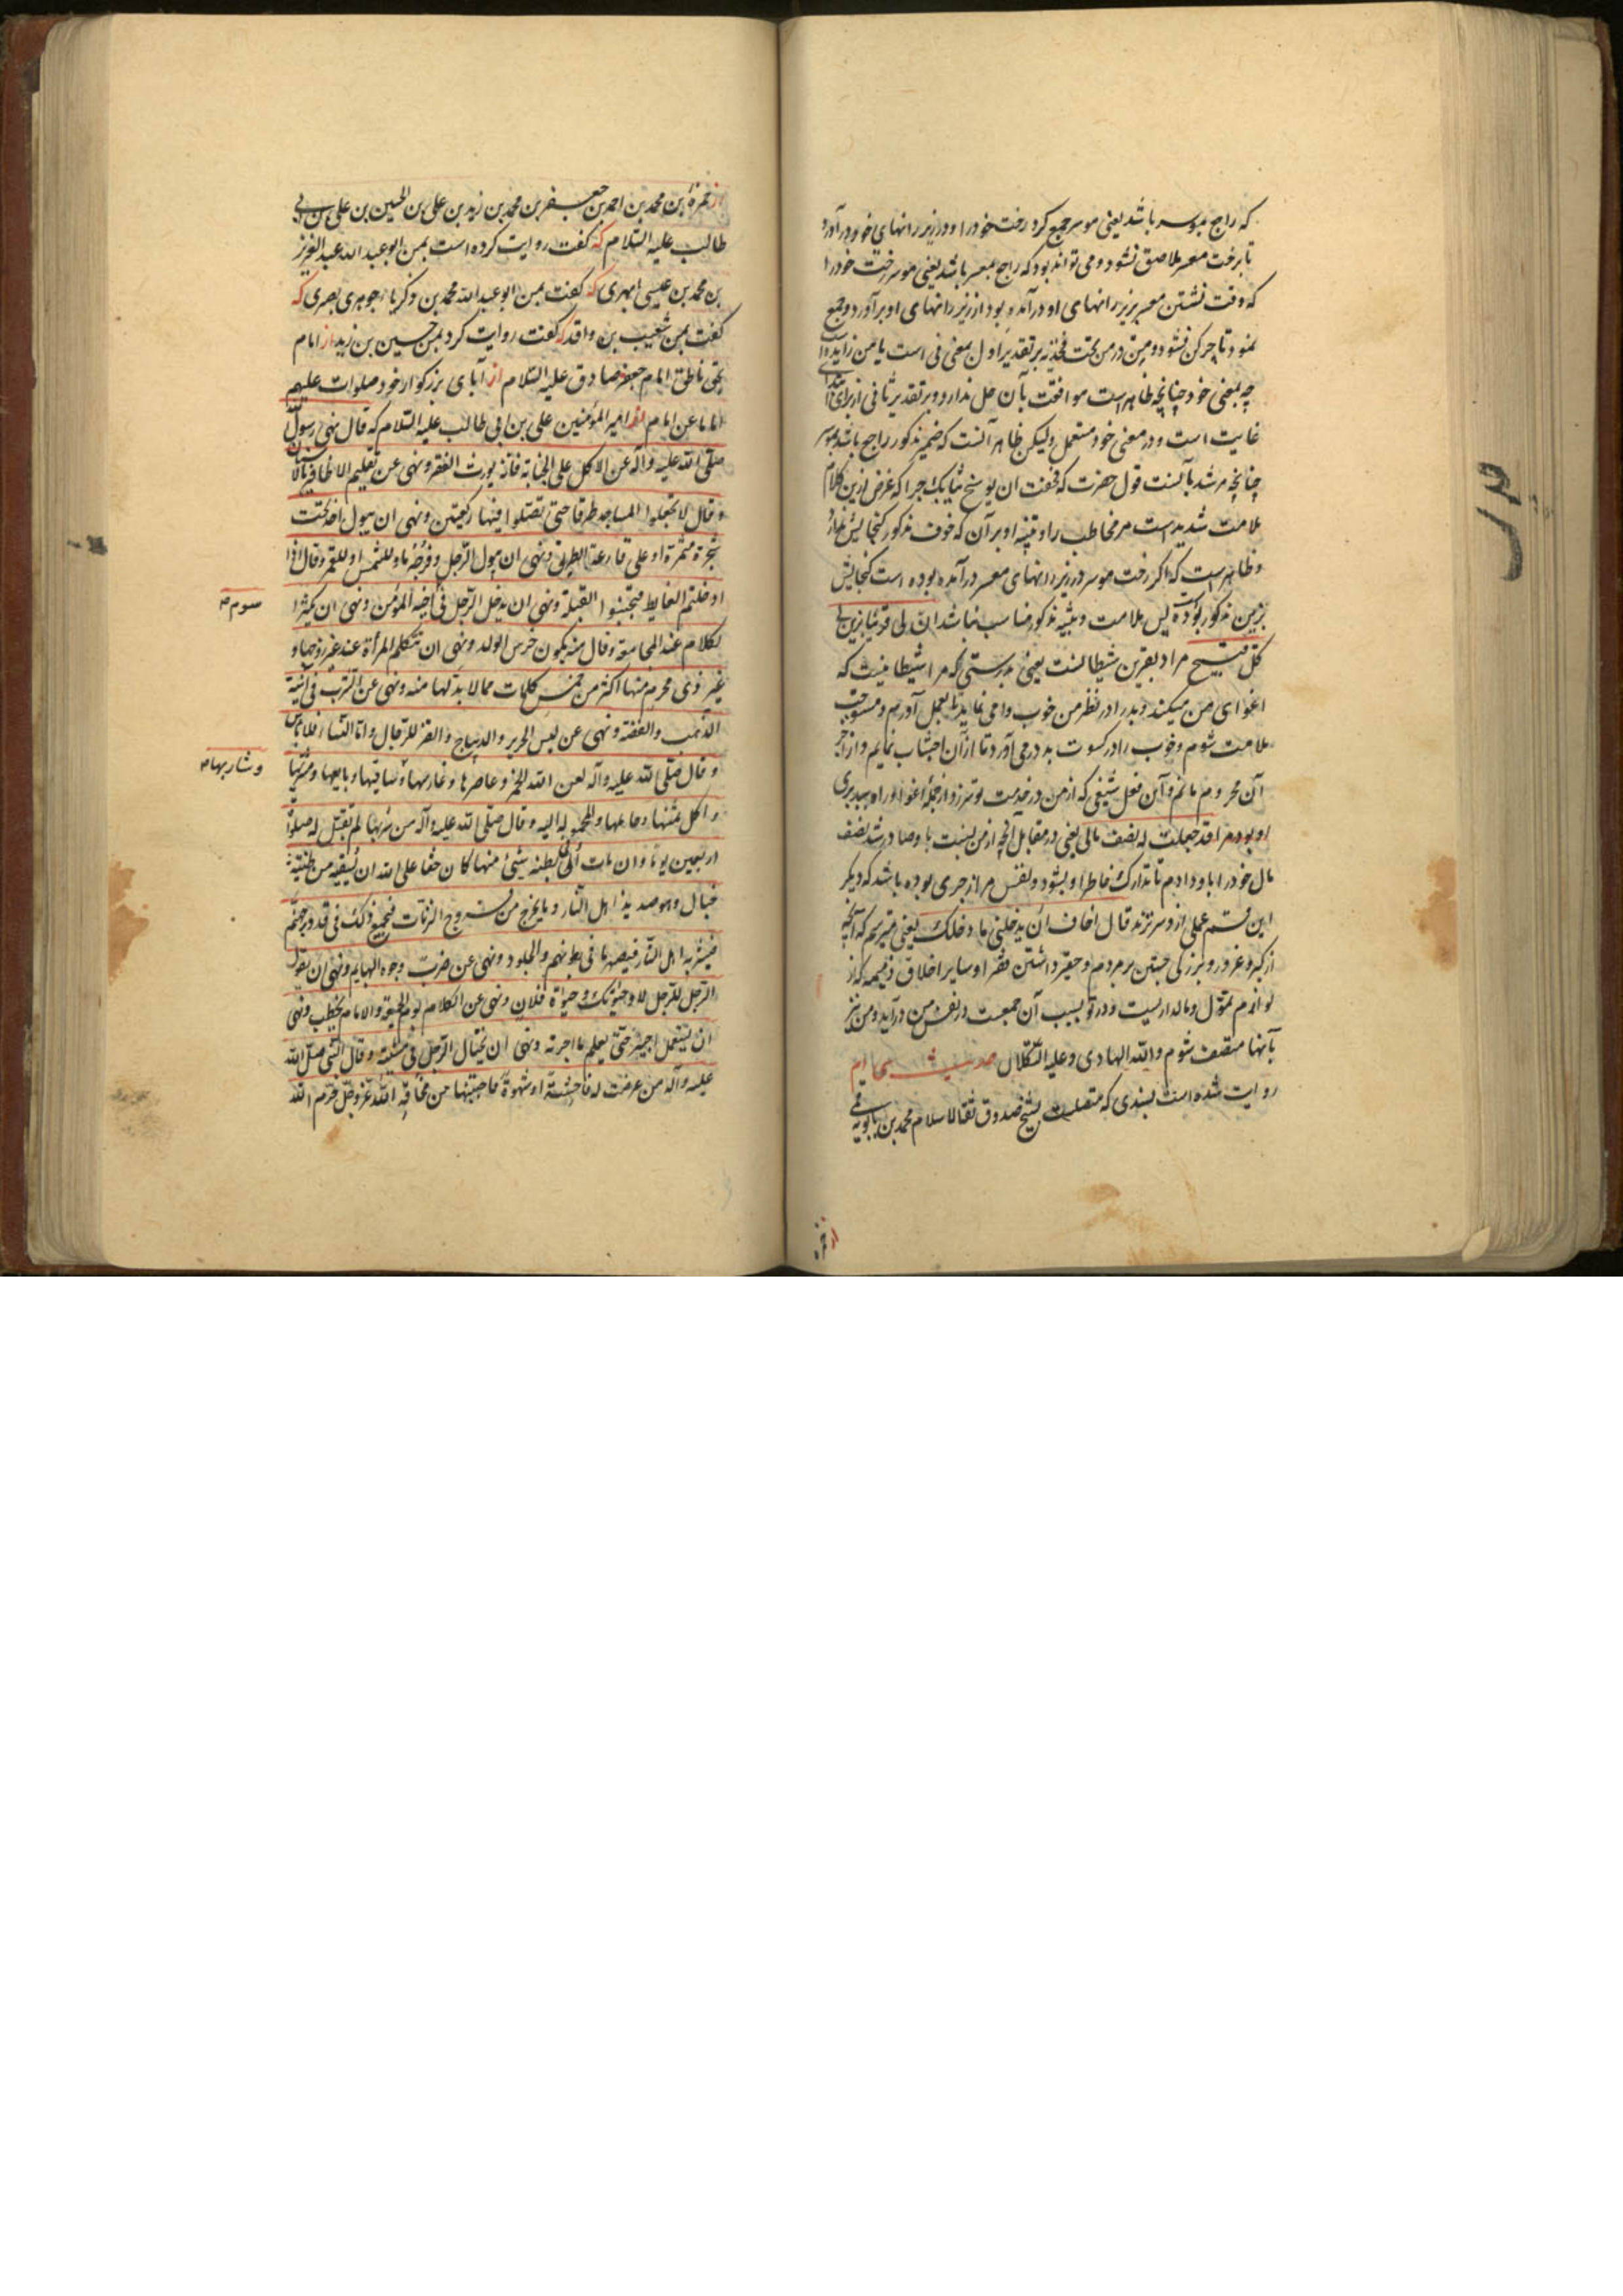 که راجع بموسر باشد یعنی موسر جمع کرد رخت خود را و در زیر رانهای خود درآورد
تا برخت معسر ملاصق نشود و می تواند بود که راجع بمعسر باشد یعنی موسر رخت خود را
که وقت نشستن معسر بزیر رانهای او درآمده بود از زیر رانهای او برآورد و جمع
نمود تا چرکن نشود و من در من تحت فخذیه بر تقدیر اول بمعنی فی است یا من زایده است
چه بمعنی خود چنانچه ظاهر است موافقت بآن حل ندارد و بر تقدیر ثانی از برای ابتدای
غایت است و در معنی خود مستعمل ولیکن ظاهر آنست که ضمیر مذکور راجع باشد بموسر
چنانچه مرشد بآنست قول حضرت که فخفت ان یوسخ ثیابک چرا که غرض ازین کلام
ملامت شدید است مر مخاطب را و تنبیه او بر آن که خوف مذکور گنجایش ندارد
و ظاهر است که اگر رخت موسر در زیر رانهای معسر درآمده بوده است گنجایش
مذکور بوده پس ملامت و تنبیه مذکور مناسب نباشد ان لی قرینا یزین لی
کل قبیح مراد بقرین شیطانست یعنی بدرستی که مرا شیطانیست که
اغوای من میکند و بد را در نظر من خوب وا می نماید تا بعمل آورم و مستوجب
ملامت شوم و خوب را در کسوت بد در می آورد تا از آن اجتناب نمایم و از اجر
آن محروم مانم و این فعل شنیع که از من در خدمت تو سرزد از جمله اغوا و راه بد بری
او بوده مرا قد جعلت له نصف مالی یعنی در مقابل آنچه از من نسبت باو صادر شد نصف
مال خود را باو دادم تا تدارک خاطر او بشود و نفس مرا زجری بوده باشد که دیگر
این قسم عملی ازو سر نزند قال اخاف ان یدخلنی ما دخلک یعنی میترسم که آنچه
از کبر و غرور و بزرگی جستن بر مردم و حقیر داشتن فقرا و سایر اخلاق ذمیمه که از
لوازم تمول و مالداریست و در تو بسبب آن جمعیت در نفس من درآید و من نیز
بآنها متصف شوم والله الهادی وعلیه التکلان حدیث
روایت شده است بسندی که متصلست بشیخ صدوق ثقة الاسلام محمد بن بابویه قمی
از حمزة
از حمزة بن محمد بن احمد بن جعفر بن محمد بن زید بن علی بن الحسین بن علی بن ابی
طالب علیه السلام که گفت روایت کرده است بمن ابو عبد الله عبد العزیز
بن محمد بن عیسی ابهری که گفت بمن ابو عبد الله محمد بن زکریا جوهری بصری که
گفت بمن شعیب بن واقد که گفت روایت کرد بمن حسین بن زید از امام
بحق ناطق امام جعفر صادق علیه السلام از آبای بزرکوار خود صلوات علیهم
اماما عن امام از امیر المؤمنین علی بن ابی طالب علیه السلام که قال نهی رسول الله
صلی الله علیه وآله عن الاکل علی الجنابة فانه یورث الفقر ونهی عن تقلیم الاظافیر بالاسنان
وقال لا تجعلوا المساجد طرقا حتی تصلوا فیها رکعتین ونهی ان یبول احد تحت
شجرة مثمرة او علی قارعة الطریق ونهی ان یبول الرجل وفرجه باد للشمس او للقمر وقال اذا
دخلتم الغایط فتجنبوا القبلة ونهی ان یدخل الرجل فی اخیه المؤمن ونهی ان یکثر
سوم
الکلام عند المجامعة وقال منه یکون خرس الولد ونهی ان تتکلم المرأة عند غیر زوجها و
غیر ذی محرم منها اکثر من خمس کلمات مما لا بد لها منه ونهی عن الشرب فی آنیة
الذهب والفضة ونهی عن لبس الحریر والدیباج والقز للرجال واما النساء فلا باس
وقال صلی الله علیه وآله لعن الله الخمر وعاصرها وغارسها وساقیها وبایعها ومشتریها
وشاربها
واکل ثمنها وحاملها والمحمولة الیه وقال صلی الله علیه وآله من شربها لم تقبل له صلوة
اربعین یوما وان مات وفی بطنه شیئ منها کان حقا علی الله ان یسقیه من طینة
خبال وهو صدید اهل النار وما یخرج من فروج الزنات فیجمع ذلک فی قدور جهنم
فیشربه اهل النار فیصهر ما فی بطونهم والجلود ونهی عن ضرب وجوه البهایم ونهی ان یقول
الرجل للرجل لا وحیوتک وحیوة فلان ونهی عن الکلام یوم الجمعة والامام یخطب ونهی
ان یستعمل اجیر حتی یعلم ما اجرته ونهی ان یختال الرجل فی مشیته وقال النبی صلی الله
علیه وآله من عرضت له فاحشة او شهوة فاجتنبها من مخافة الله عز وجل حرم الله